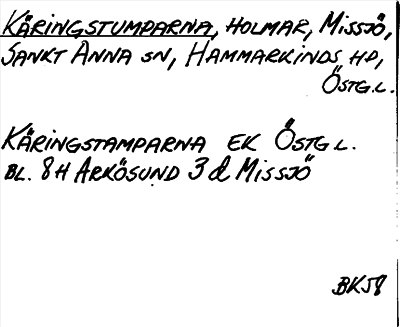 KÄRINGSTUMPARNA, HOLMAR, MISSJÖ,
SANKT ANNA SN, HAMMARKINDS HD,
ÖSTG.L.
KÄRINGSTAMPARNA EK ÖSTG L.
BL. 8H ARKÖSUND 3 d MISSJÖ
BK58